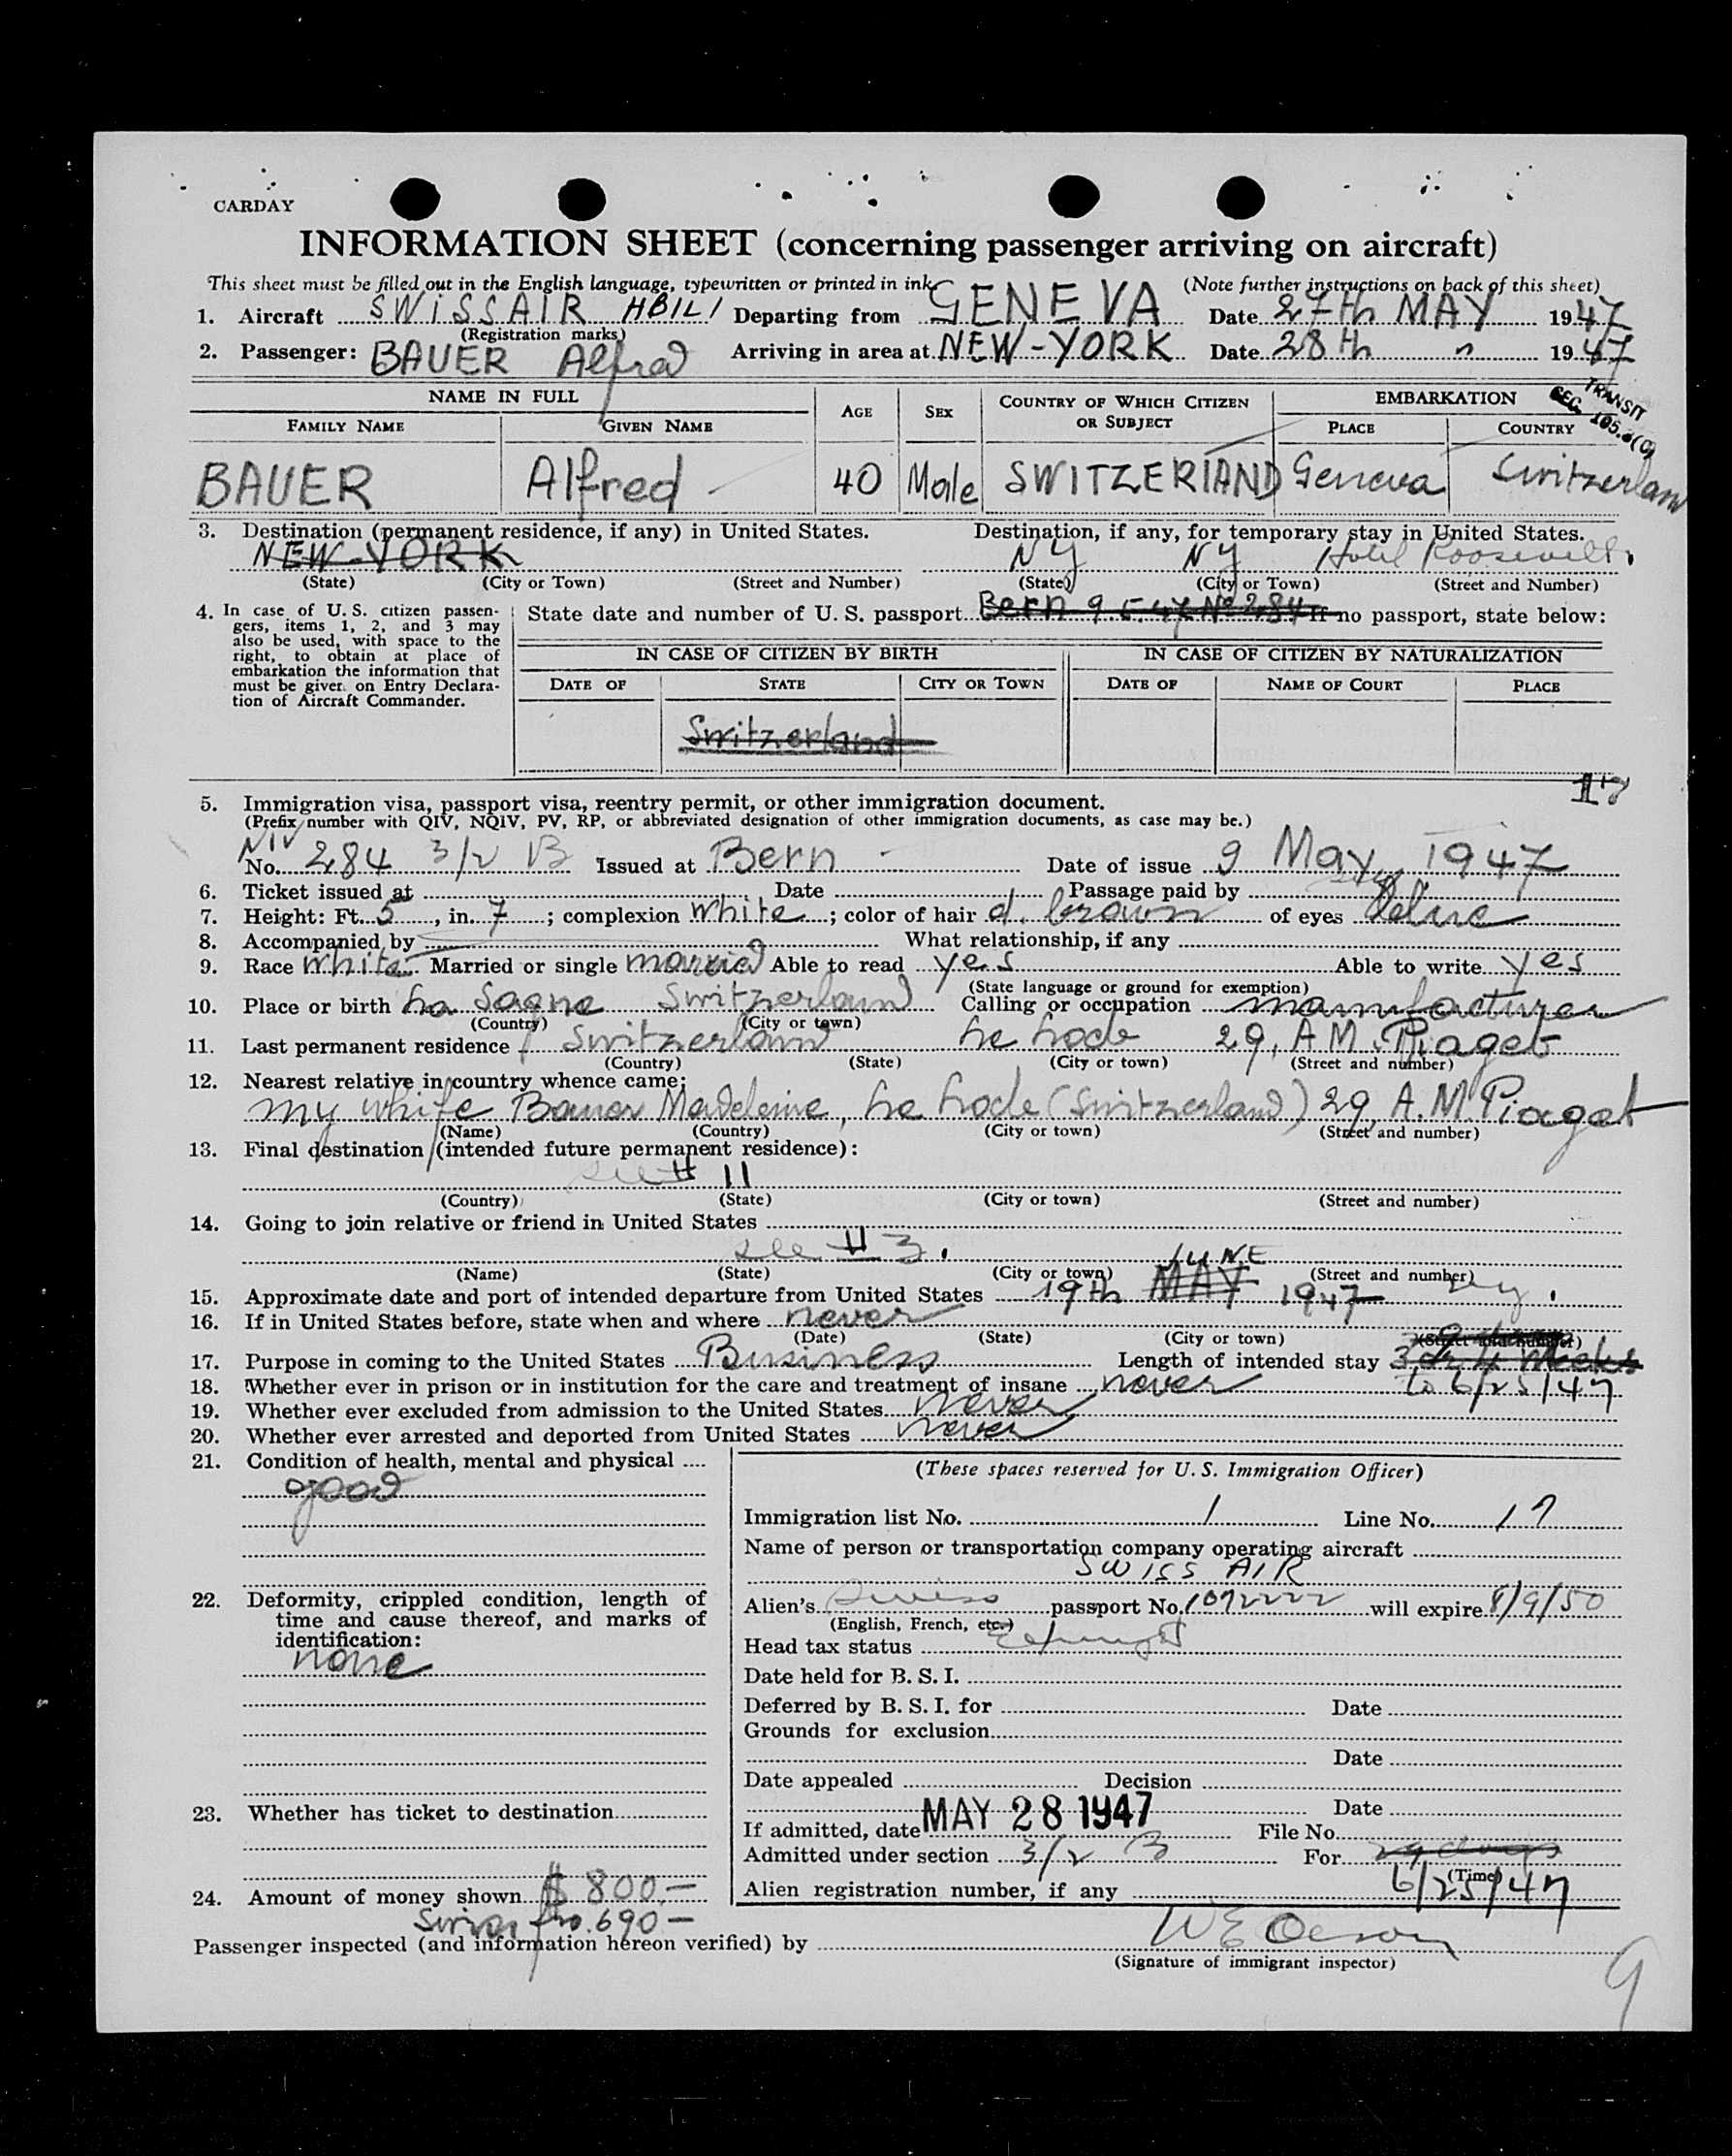 CARDAY
INFORMATION SHEET (concerning passenger arriving on aircraft)
This sheet must be filled out in the English language, typewritten or printed in ink. (Note further instructions on back of this sheet)
1. Aircraft SWISSAIR HBILI Departing from GENEVA Date 27th MAY 1947
(Registration marks)
2. Passenger: BAUER Alfred Arriving in area at NEW-YORK Date 28th " 1947
TRANSIT
SEC. 105.3(C)
NAME IN FULL AGE SEX COUNTRY OF WHICH CITIZEN OR SUBJECT EMBARKATION
FAMILY NAME GIVEN NAME PLACE COUNTRY
BAUER Alfred 40 Male SWITZERLAND Geneva Switzerland
3. Destination (permanent residence, if any) in United States. Destination, if any, for temporary stay in United States.
NEW-YORK NY NY Hotel Roosevelt.
(State) (City or Town) (Street and Number) (State) (City or Town) (Street and Number)
4. In case of U. S. citizen passengers, items 1, 2, and 3 may also be used, with space to the right, to obtain at place of embarkation the information that must be given on Entry Declaration of Aircraft Commander.
State date and number of U. S. passport Bern 9.5.47 No 284 If no passport, state below:
IN CASE OF CITIZEN BY BIRTH IN CASE OF CITIZEN BY NATURALIZATION
DATE OF STATE CITY OR TOWN DATE OF NAME OF COURT PLACE
Switzerland
17
5. Immigration visa, passport visa, reentry permit, or other immigration document.
(Prefix number with QIV, NQIV, PV, RP, or abbreviated designation of other immigration documents, as case may be.)
NIV
No. 284 3/2 B Issued at Bern Date of issue 9 May 1947
6. Ticket issued at Date Passage paid by
7. Height: Ft. 5, in. 7; complexion white; color of hair d. brown of eyes blue
8. Accompanied by What relationship, if any
9. Race white Married or single married Able to read yes Able to write yes
(State language or ground for exemption)
10. Place or birth La Sagne Switzerland Calling or occupation manufacturer
(Country) (City or town)
11. Last permanent residence Switzerland Le Locle 29, A.M. Piaget
(Country) (State) (City or town) (Street and number)
12. Nearest relative in country whence came:
my white Bauer Madeleine, Le Locle (Switzerland) 29 A.M. Piaget
(Name) (Country) (City or town) (Street and number)
13. Final destination (intended future permanent residence):
see # 11
(Country) (State) (City or town) (Street and number)
14. Going to join relative or friend in United States
see # 3.
(Name) (State) (City or town) (Street and number)
JUNE
15. Approximate date and port of intended departure from United States 19th MAY 1947 ny.
16. If in United States before, state when and where never
(Date) (State) (City or town) (Street and number)
17. Purpose in coming to the United States Business Length of intended stay 3 or 4 weeks
to 6/25/47
18. Whether ever in prison or in institution for the care and treatment of insane never
19. Whether ever excluded from admission to the United States never
20. Whether ever arrested and deported from United States never
21. Condition of health, mental and physical
good
22. Deformity, crippled condition, length of time and cause thereof, and marks of identification:
none
23. Whether has ticket to destination
24. Amount of money shown $ 800.-
frs. 690-
(These spaces reserved for U. S. Immigration Officer)
Immigration list No. 1 Line No. 17
Name of person or transportation company operating aircraft
SWISS AIR
Alien's Swiss passport No. 1072222 will expire 8/9/50
(English, French, etc.)
Head tax status Exempt
Date held for B. S. I.
Deferred by B. S. I. for Date
Grounds for exclusion
Date
Date appealed Decision
Date
If admitted, date MAY 28 1947 File No.
Admitted under section 3/2 B For 29 days
(Time)
6/25/47
Alien registration number, if any
Passenger inspected (and information hereon verified) by
(Signature of immigrant inspector)
9